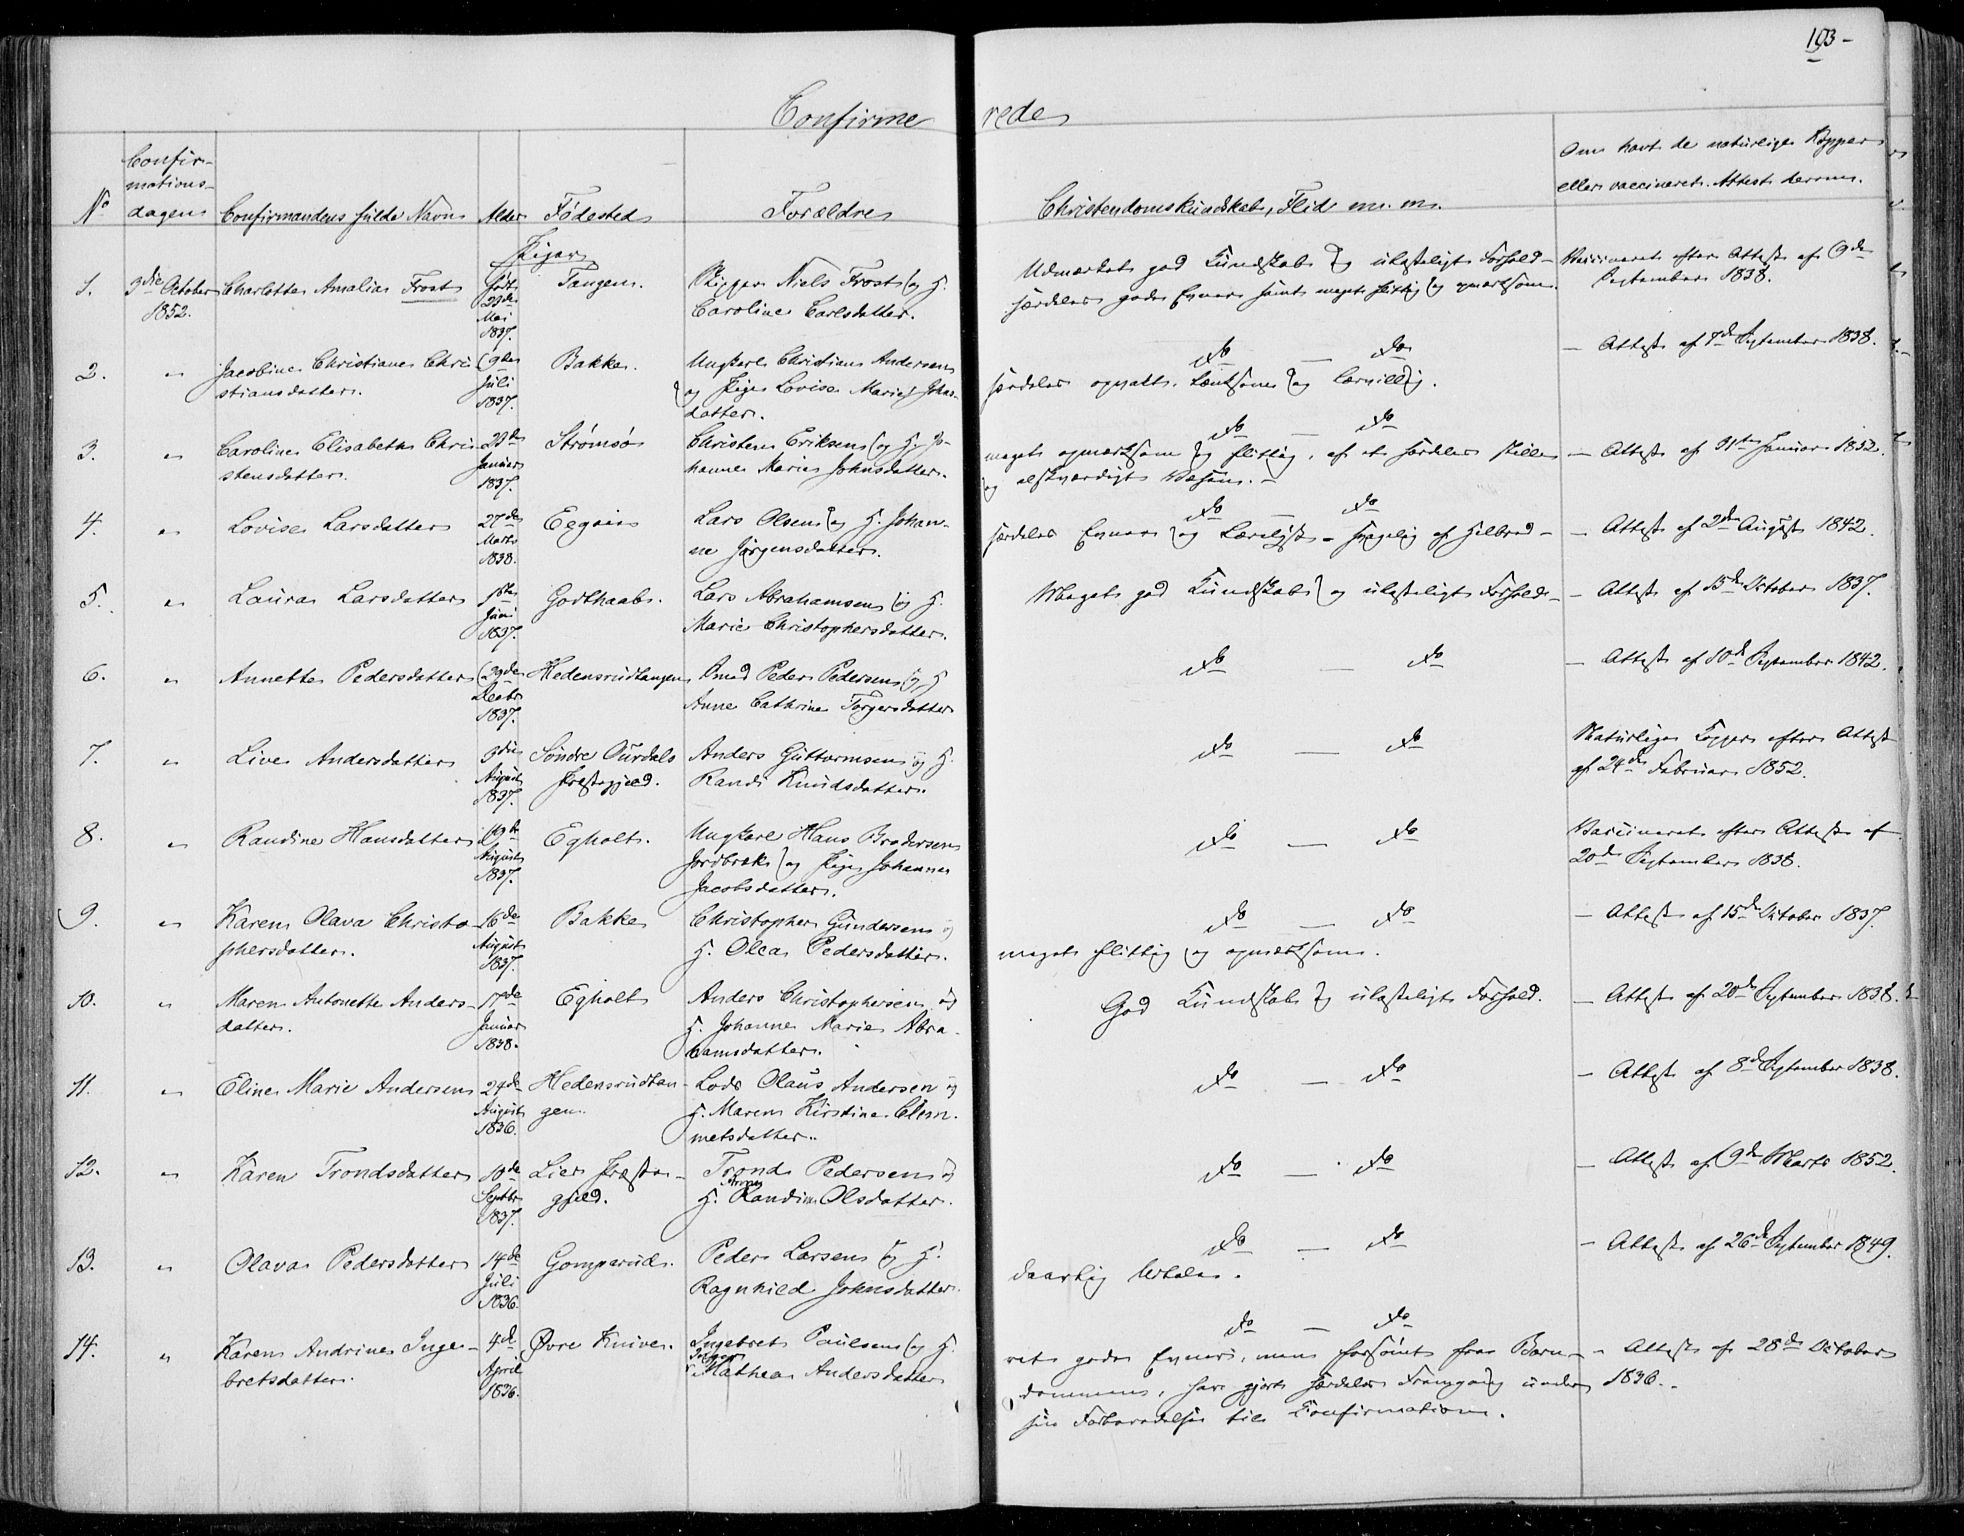 193 -
Confirmerede
No Confirmationsdagen Confirmandens fulde Navn Alder Fødested Forældre Christendomskundskab, Flid m. m. Om havt de naturlige Kopper eller vaccineret. Attest derom.
Piger
1. 3die October 1852. Charlotte Amalia Frost født 29de Mai 1837. Tangen. Skipper Niels Frost og H. Caroline Carlsdatter. Udmærket god Kundskab og ulasteligt Forhold - særdeles gode Evner samt meget flittig og opmærksom. Vaccineret efter Attest af 9de September 1838.
2. " Jacobine Christiane Christiansdatter. 9de Juli 1837. Bakke. Ungkarl Christian Andersen og Pige Lovise Marie Johnsdatter. do - do særdeles opvakt, lærvillig. - Attest af 7de September 1838.
3. " Caroline Elisabeth Christensdatter. 29de Januar 1837. Strømsø Christen Eriksen og H. Johanne Marie Johnsdatter. do - do meget opmærksom og flittig, af et særdeles stille og elskværdigt Væsen. - - Attest af 31te Januar 1852.
4. " Lovise Larsdatter 27de Marts 1838. Eegaie Lars Olsen og H. Johanne Jørgensdatter. do - do særdeles Evner og Lærelyst - svagelig af Helbred - - Attest af 2de August 1842.
5. " Laura Larsdatter 1ste Juni 1837. Godthaab. Lars Abrahamsen og H. Marie Christophersdatter. Meget god Kundskab og ulasteligt Forhold. - Attest af 15de October 1837.
6. " Annette Pedersdatter 29de Decbr 1837. Hedensrudtangen Peder Pedersen og H. Anne Cathrine Torgersdatter do - do - Attest af 10de September 1842.
7. " Live Andersdatter 3die August 1837. Søndre Ourdals Præstegjeld. Anders Guttormsen og H. Randi Knudsdatter. do - do Naturlige Kopper efter Attest af 24de Februar 1852.
8. " Randine Hansdatter 19de August 1837. Egholt. Ungkarl Hans Brodersen Jordbræk og Pige Johanne Jacobsdatter. do - do Vaccineret efter Attest af 20de September 1838.
9. " Karen Olava Christophersdatter. 16de August 1837. Bakke Christopher Gundersen og H. Olea Pedersdatter. do - do meget flittig og opmærksom. - Attest af 15de October 1837.
10. " Maren Antonette Andersdatter. 17de Januar 1838. Egholt Anders Christophersen og H. Johanne Marie Abrahamsdatter. God Kundskab og ulasteligt Forhold. - Attest af 20de September 1838.
11. " Eline Marie Andersen 29de August 1836. Hedensrudtangen. Lods Olaus Andersen og H. Maren Kirstine Clemmetsdatter. do - do - Attest af 8de September 1838.
12. " Karen Trondsdatter 10de Septbr 1837. Lier Præstegjeld. Trond Pedersen og H. Randine Olsdatter. do - do - Attest af 9de Marts 1852.
13. " Olava Pedersdatter 14de Juli 1836. Gomperud. Peder Larsen og H. Ragnhild Johnsdatter. do - do daarlig Udtale. - Attest af 26de September 1849.
14. " Karen Andrine Ingebretsdatter. 4de April 1836. Øvre Knive. Ingebret Paulsen og H. Mathea Andersdatter do - do ret gode Evner, men forsømt fra Barndommen, har gjort særdeles Fremgang under sin Forberedelse til Confirmation. - Attest af 28de October 1836.